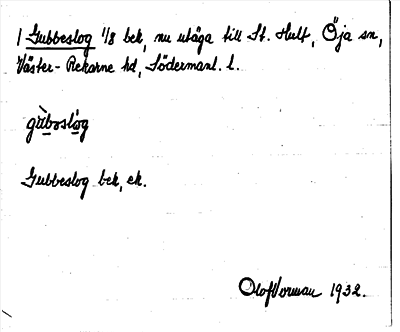 / Gubbeslog 1/8 bek, nu utäga till St. Hult, Öja sn,
Väster-Rekarne hd, Södermanl. l.
gùbɘslòg
Gubbeslog bek, ek.
Olof Norman 1932.